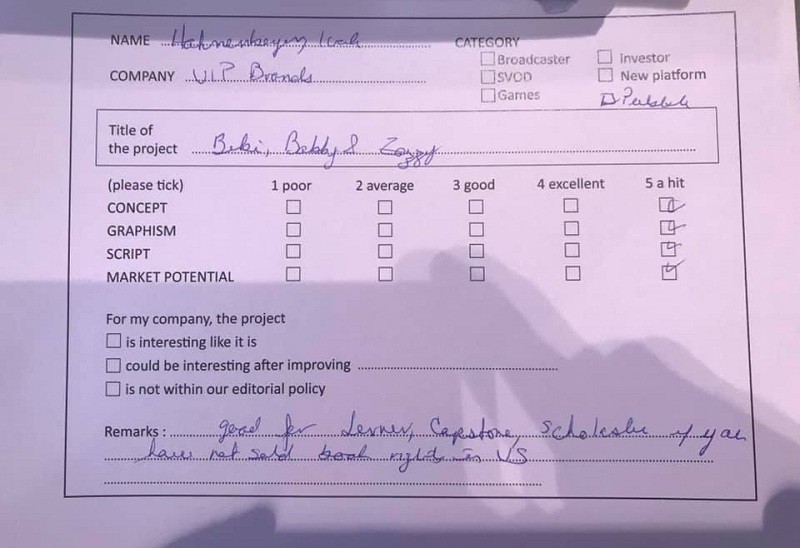 NAME
CATEGORY
COMPANY VIP Brands
Broadcaster
Investor
SVOD
New platform
Games
Title of
the project Beki, Bobby & Zozzy
(please tick) 1 poor 2 average 3 good 4 excellent 5 a hit
CONCEPT
GRAPHISM
SCRIPT
MARKET POTENTIAL
For my company, the project
is interesting like it is
could be interesting after improving
is not within our editorial policy
Remarks : good for Lerner, Capstone, Scholastic if you
have not sold book rights in US